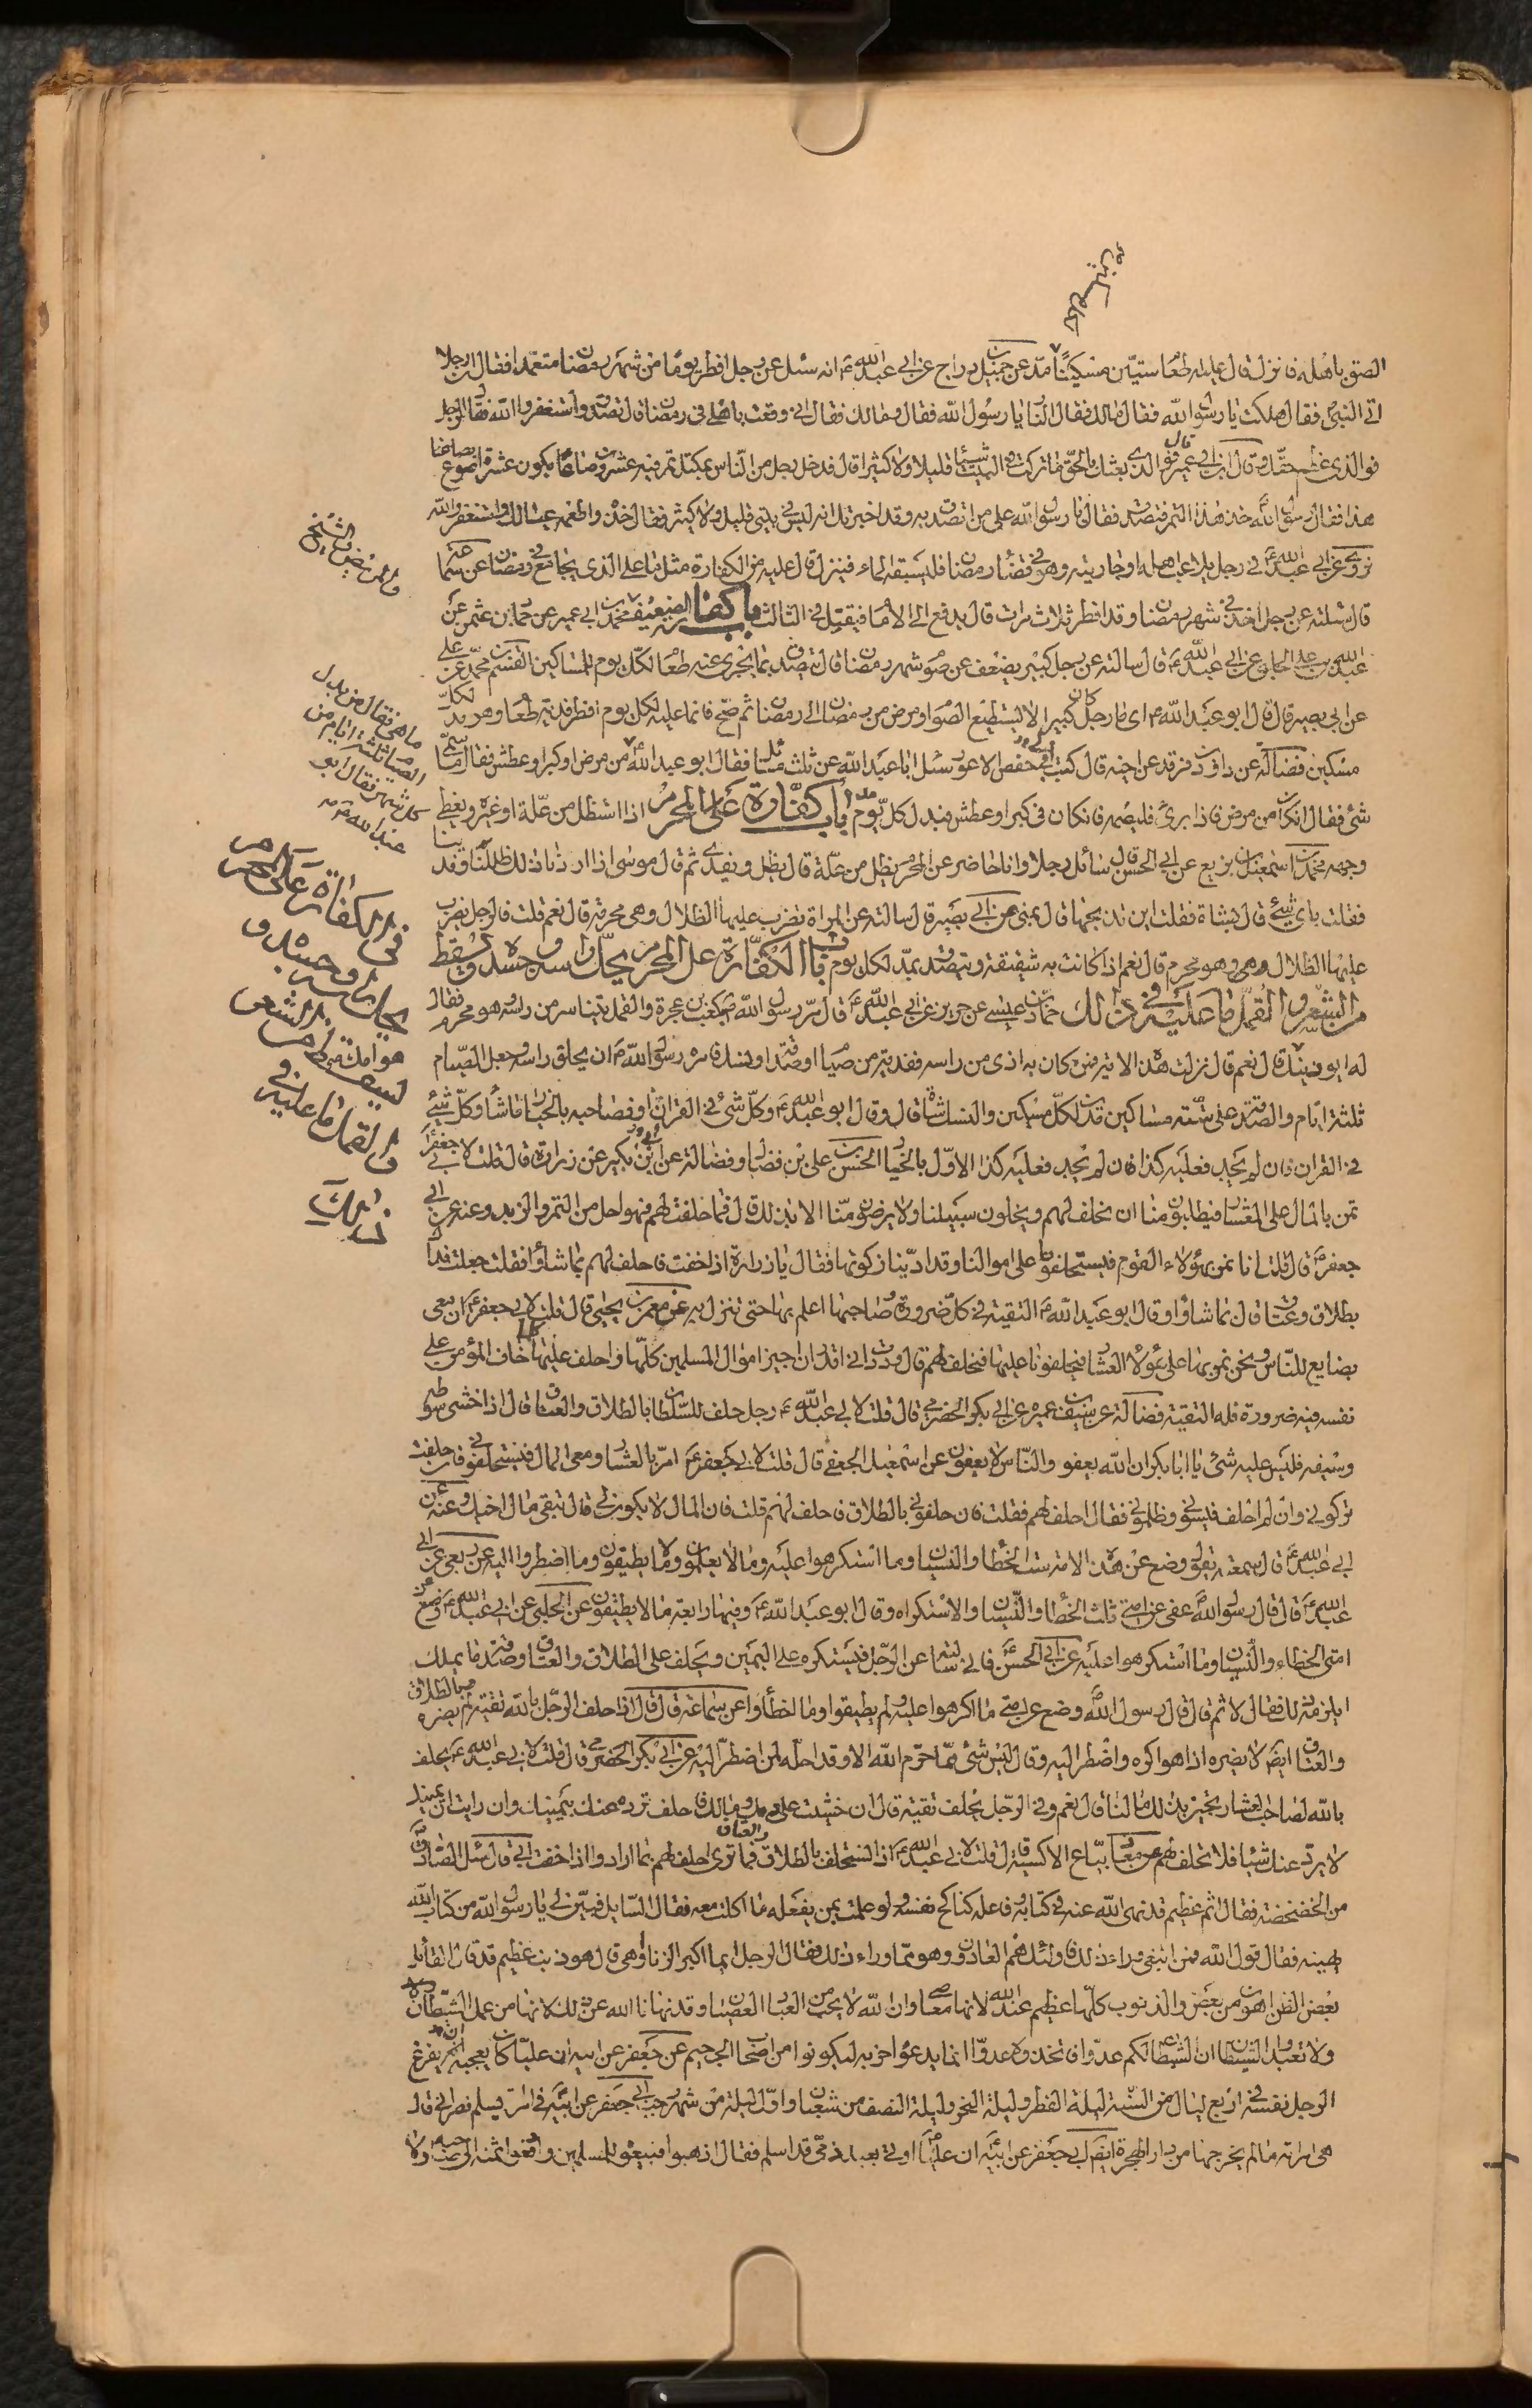 الصق باهله فانزل قال عليه طعام ستين مسكينا مد عن جميل بن دراج عن ابي عبدالله ع انه سئل عن رجل افطر يوما من شهر رمضان متعمدا فقال ان رجلا
اتى النبي فقال هلكت يا رسول الله فقال مالك فقال النار يا رسول الله فقال ومالك فقال اني وقعت باهلي في رمضان قال تصدق واستغفر الله فقال الرجل
فوالذي عظم حقك وقال ابن ابي عمير فوالذي بعثك بالحق ما تركت في البيت شيئا قليلا ولا كثيرا قال فدخل رجل من الناس بمكتل تمر فيه عشرون صاعا يكون عشرة اصوع بصاعنا
هذا فقال رسول الله خذ هذا التمر فتصدق فقال يا رسول الله على من اتصدق به وقد اخبرتك انه ليس في بيتي قليل ولا كثير فقال خذه واطعمه عيالك واستغفر الله
وروي عن ابي عبدالله في رجل يلاعب اهله او جاريته وهو في قضاء رمضان فيسبقه الماء فينزل قال عليه من الكفارة مثل ما على الذي يجامع في رمضان عن سماعة
قال سئلته عن رجل اخذ في شهر رمضان وقد افطر ثلاث مرات قال يدفع الى الامام فيقتل في الثالث باب كفارة الضعيف محمد بن ابي عمير عن حماد بن عثمن عن
عبدالله بن علي الحلبي عن ابي عبدالله ع قال سالته عن رجل كبير يضعف عن صوم شهر رمضان قال يتصدق بما يجزي عنه طعام لكل يوم للمساكين القسم بن محمد عن علي
عن ابي بصير قال قال ابو عبدالله ع اي ما رجل كان كبيرا لا يستطيع الصوم او مرض من رمضان الى رمضان ثم صح فانما عليه لكل يوم افطر فدية طعام وهو مد لكل
مسكين فضالة عن داود بن فرقد عن اخيه قال كتب الي حفص الاعور سئل ابا عبدالله عن ثلث مسائل فقال ابو عبدالله ع من مرض او كبر او عطش فقال ما سمى
شئ فقال ان كان من مرض فاذا برئ فليصمه فان كان في كبر او عطش فبدل كل يوم مد باب كفارة على المحرم اذا استظل من علة او غيره ويغطي
وجهه محمد بن اسمعيل بن بزيع عن ابي الحسن قال سائل رجلا وانا حاضر عن المحرم يظل من علة قال يظل ويفدي ثم قال موسى اذا اردنا ذلك ظللنا وفدينا
فقلت باي شئ قال بشاة فقلت اين تذبحها قال بمنى عن ابي بصير قال سالته عن المراة تضرب عليها الظلال وهي محرمة قال نعم قلت فالرجل يضرب
عليها الظلال وهي وهو محرم قال نعم اذا كانت به شقيقة ويتصدق بمد لكل يوم باب الكفارة على المحرم يحك راسه وجسده ويسقط
من الشعر والقمل ما عليه في ذلك حماد بن عيسى عن حريز عن ابي عبدالله ع قال مر رسول الله ص بكعب بن عجرة والقمل يتناثر من راسه وهو محرم فقال
له ايوذيك قال نعم قال نزلت هذه الاية فمن كان به اذى من راسه ففدية من صيام او صدقة او نسك فامره رسول الله ص ان يحلق راسه وجعل الصيام
ثلثة ايام والصدقة على ستة مساكين مدان لكل مسكين والنسك شاة قال وقال ابو عبدالله ع وكل شئ في القران او فصاحبه بالخيار ما شاء وكل شئ
في القران فان لم يجد فعليه كذا فان لم تجد فعليه كذا الاول بالخيار الحسن بن علي بن فضال وفضالة عن ابن بكير عن زرارة قال قلت لابي جعفر
نمر بالمال على العشار فيطلبون منا ان نحلف لهم ويخلون سبيلنا ولا يرضون منا الا بذلك قال فما حلفت لهم فهو احل من التمر والزبد وعنه عن ابي
جعفر ع قال قلت له انا نمر بهؤلاء القوم فيستحلفونا على اموالنا وقد ادينا زكوتها فقال يا زرارة اذا خفت فاحلف لهم بما شاؤا فقلت جعلت فداك
بطلاق وعتاق قال بما شاؤا وقال ابو عبدالله ع التقية في كل ضرورة وصاحبها اعلم بها حتى تنزل به عن معمر بن يحيى قال قلت لابي جعفر ع ان معي
بضايع للناس ونحن نمر بها على هؤلاء العشار فيحلفونا عليها فنحلف لهم قال وددت اني اقدر ان اجيز اموال المسلمين كلها واحلف عليها كلما خاف المؤمن على
نفسه فيه ضرورة فله التقية فضالة عن سيف بن عميرة عن ابي بكر الحضرمي قال قلت لابي عبدالله ع رجل حلف للسلطان بالطلاق والعتاق قال اذا خشي سوطه
وسيفه فليس عليه شئ يا ابا بكر ان الله يعفو والناس لا يعفون عن اسمعيل الجعفي قال قلت لابي جعفر ع امر بالعشار ومعي المال فيستحلفوني فان حلفت
تركوني وان لم احلف فتشوني وظلموني فقال احلف لهم فقلت فان حلفوني بالطلاق فاحلف لهم قلت فان المال لا يكون لي قال تتقي مال اخيك وعنه عن
ابي عبدالله ع قال سمعته يقول وضع عن هذه الامة ست الخطا والنسيان وما استكرهوا عليه وما لا يعلمون وما لا يطيقون وما اضطروا اليه عن ربعي عن ابي
عبدالله ع قال قال رسول الله عفى عن امتي ثلث الخطا والنسيان والاستكراه وقال ابو عبدالله ع وفيها رابعة ما لا يطيقون عن الحلبي عن ابي عبدالله ع وضع عن
امتي الخطاء والنسيان وما استكرهوا عليه عن ابي الحسن ع قال سالته عن الرجل فيستكره على اليمين ويحلف على الطلاق والعتاق وصدقة ما يملك
ايلزمه ذلك فقال لا ثم قال قال رسول الله وضع عن امتي ما اكرهوا عليه ولم يطيقوا وما اخطأوا عن سماعة قال قال اذا حلف الرجل بالله تقية لم يضره وبالطلاق
والعتاق ايضا لا يضره اذا هو اكره واضطر اليه وقال ليس شئ مما حرم الله الا وقد احله لمن اضطر اليه عن ابي بكر الحضرمي قال قلت لابي عبدالله ع يحلف
بالله لصاحب العشار يجيز بذلك مالنا قال نعم وفي الرجل يحلف تقية قال ان خشيت على دمك ومالك فاحلف ترده عنك بيمينك وان رايت ان يمينك
لا يرد عنك شيئا فلا تحلف لهم عن معاذ بياع الاكسية قال قلت لابي عبدالله ع انا نستحلف بالطلاق والعتاق فما ترى احلف لهم بما ارادوا اذا خفت ابي قال سئل الصادق
من الخضخضة فقال اثم عظيم قد نهى الله عنه في كتابه وفاعله كناكح نفسه ولو علمت بمن يفعله ما اكلت معه فقال السايل فبين لي يا رسول الله من كتاب الله
نهيه فقال قول الله فمن ابتغى وراء ذلك فاولئك هم العادون وهو مما وراء ذلك فقال الرجل ايما اكبر الزنا او هي قال هو ذنب عظيم قد قال القائل
بعض الظن اهون من بعض والذنوب كلها عظيم عند الله لانها معاصي وان الله لا يحب من العباد العصيان وقد نهانا الله عن ذلك لانها من عمل الشيطان
ولا تعبدوا الشيطان ان الشيطان لكم عدو فاتخذوه عدوا انما يدعو حزبه ليكونوا من اصحاب الجحيم عن جعفر عن ابيه ان عليا كان يعجبه ان يفرغ
الرجل نفسه في اربع ليال من السنة ليلة الفطر وليلة النحر وليلة النصف من شعبان واول ليلة من شهر رجب ابي جعفر عن ابيه في امراة يسلم نصراني قال
هي امراته ما لم يخرجها من دار الهجرة ايضا ابي جعفر عن ابيه ان عليا اوتي بعبد لذمي قد اسلم فقال اذهبوا فبيعوه للمسلمين وادفعوا ثمنه الى صاحبه ولا
ماهي فقال من بدل
الصيام ثلثة ايام من
كل شهر فقال ابو
عبدالله ع
في الكفارة على المحرم
يحك راسه وجسده و
هوام الشعر
والقمل ما عليه في
ذلك